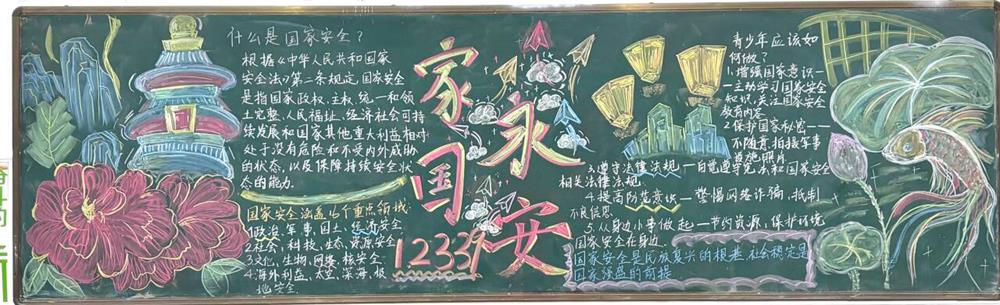 什么是国家安全？
根据《中华人民共和国国家
安全法》第二条规定，国家安全
是指国家政权、主权、统一和领
土完整、人民福祉、经济社会可持
续发展和国家其他重大利益相对
处于没有危险和不受内外威胁
的状态，以及保障持续安全状
态的能力。
国家安全涵盖16个重点领域：
1.政治，军事，国土，经济安全
2.社会，科技，生态，资源安全
3.文化，生物，网络，核安全
4.海外利益，太空，深海，极
地安全
家
国
永
安
12339
青少年应该如
何做？
1.增强国家意识一
一主动学习国家安全
知识，关注国家安全
教育内容
2.保护国家秘密——
不随意拍摄军事
设施照片
3.遵守法律法规—自觉遵守宪法和国家安全
相关法律法规
4.提高防范意识—警惕网络诈骗，抵制
不良信息
5.从身边小事做起—节约资源，保护环境
国家安全在身边
国家安全是民族复兴的根基 社会稳定是
国家强盛的前提